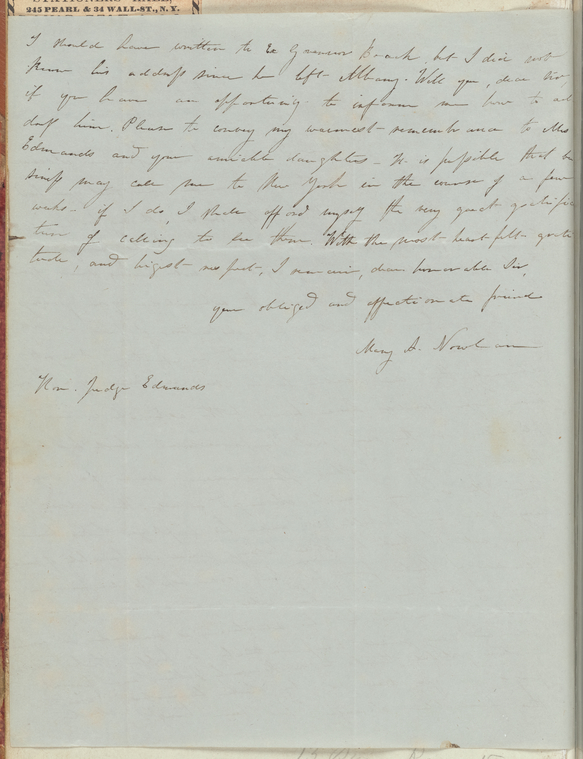 STATIONERS' HALL,
245 PEARL & 34 WALL-ST., N.Y.
I should have written to Ex Governor but I did not
know his address since he left Albany. Will you, dear Sir,
if you have an opportunity to inform me how to ad
dress him. Please to convey my warmest remembrance to Mrs
Edmonds and your amiable daughters. It is possible that bu
siness may call me to New York in the course of a few
weeks - if I do, I shall afford myself the very great gratifica
tion of calling to see them. With the most heart felt grati
tude, and highest respect, I remain, dear honorable Sir,
your obliged and affectionate friend
Mary A.
Hon. Judge Edmonds